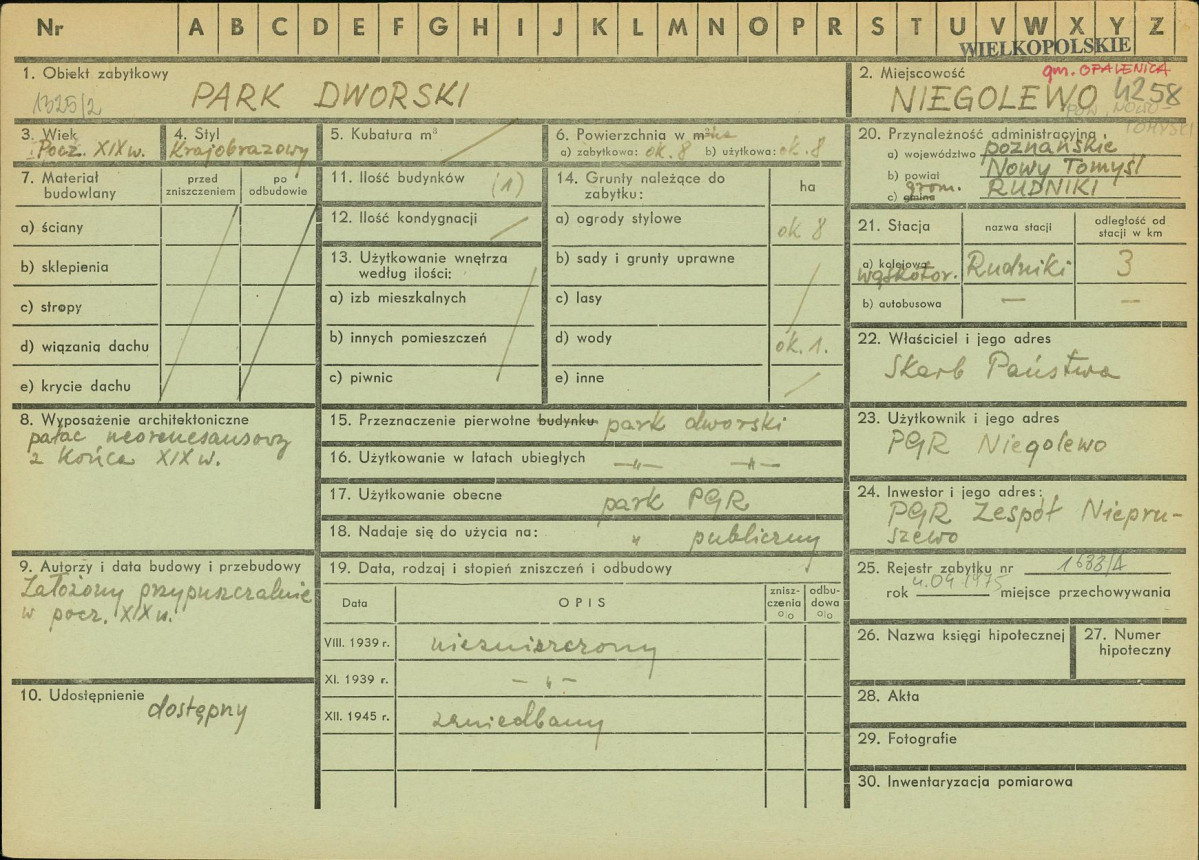 Nr A B C D E F G H I J K L M N O P R S T U V W X Y Z
WIELKOPOLSKIE
1. Obiekt zabytkowy
1325/2
PARK DWORSKI
2. Miejscowość
gm. OPALENICA
NIEGOLEWO 4258
POW. NOWO-
TOMYSKI
3. Wiek
Pocz. XIX w.
4. Styl
Krajobrazowy
5. Kubatura m³
6. Powierzchnia w m² ha
a) zabytkowa: ok. 8 b) użytkowa: ok. 8
20. Przynależność administracyjna
a) województwo poznańskie
b) powiat Nowy Tomyśl
c) gmina grom. RUDNIKI
7. Materiał
budowlany
przed
zniszczeniem
po
odbudowie
a) ściany
b) sklepienia
c) stropy
d) wiązania dachu
e) krycie dachu
11. Ilość budynków (1)
12. Ilość kondygnacji
13. Użytkowanie wnętrza
według ilości:
a) izb mieszkalnych
b) innych pomieszczeń
c) piwnic
14. Grunty należące do
zabytku:
ha
a) ogrody stylowe ok 8
b) sady i grunty uprawne
c) lasy
d) wody ok. 1.
e) inne
21. Stacja
nazwa stacji
odległość od
stacji w km
a) kolejowa
wąskotor. Rudniki 3
b) autobusowa — —
22. Właściciel i jego adres
Skarb Państwa
8. Wyposażenie architektoniczne
pałac neorenesansowy
z końca XIX w.
15. Przeznaczenie pierwotne budynku park dworski
16. Użytkowanie w latach ubiegłych —„— —„—
17. Użytkowanie obecne park PGR
18. Nadaje się do użycia na: „ publiczny
23. Użytkownik i jego adres
PGR Niegolewo
24. Inwestor i jego adres:
PGR Zespół Niepru-
szewo
9. Autorzy i data budowy i przebudowy
Założony przypuszczalnie
w pocz. XIX w.
10. Udostępnienie
dostępny
19. Data, rodzaj i stopień zniszczeń i odbudowy
Data
OPIS
znisz-
czenia
%
odbu-
dowa
%
VIII. 1939 r. niezniszczony
XI. 1939 r. —„—
XII. 1945 r. zaniedbany
25. Rejestr zabytku nr 1688/A
rok 4.09.1975 miejsce przechowywania
26. Nazwa księgi hipotecznej
27. Numer
hipoteczny
28. Akta
29. Fotografie
30. Inwentaryzacja pomiarowa